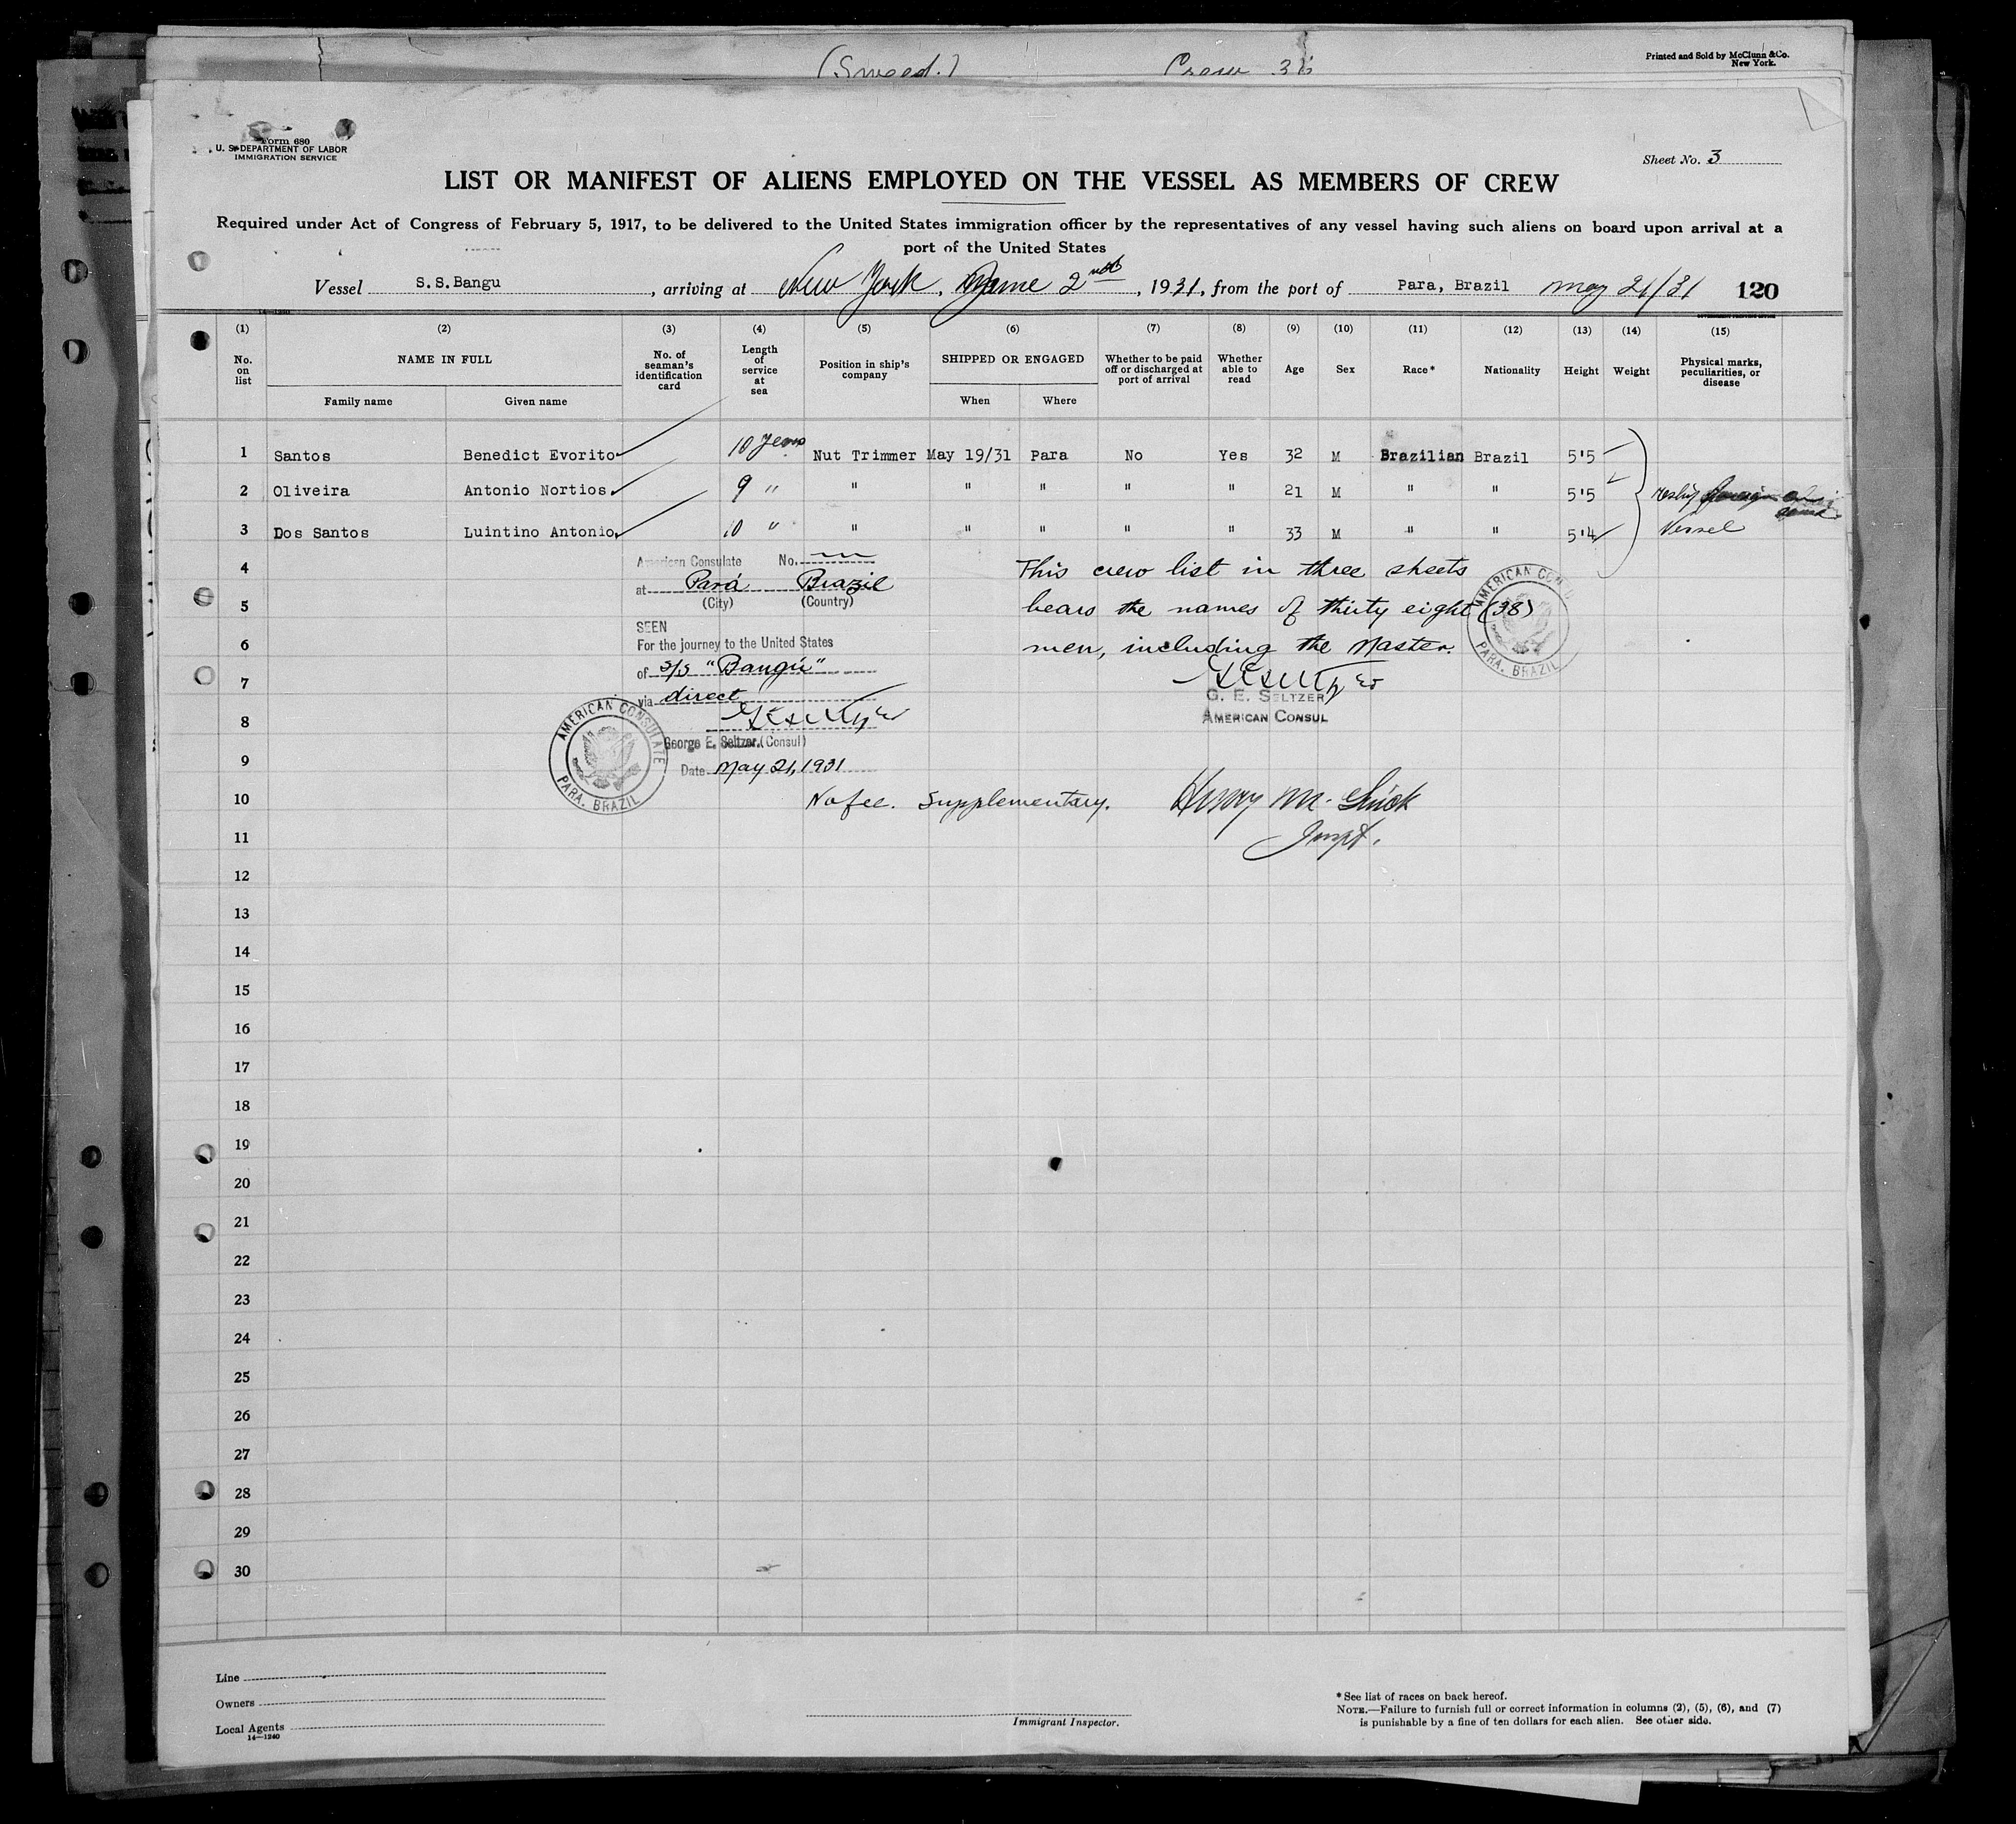 (Sweed.) Crew 38
Printed and Sold by McClunn & Co.
New York.
Form 680
U. S. DEPARTMENT OF LABOR
IMMIGRATION SERVICE
Sheet No. 3
LIST OR MANIFEST OF ALIENS EMPLOYED ON THE VESSEL AS MEMBERS OF CREW
Required under Act of Congress of February 5, 1917, to be delivered to the United States immigration officer by the representatives of any vessel having such aliens on board upon arrival at a
port of the United States
Vessel S.S.Bangu, arriving at New York, June 2nd, 1931, from the port of Para, Brazil May 21/31 120
14-1240
(1) (2) (3) (4) (5) (6) (7) (8) (9) (10) (11) (12) (13) (14) (15)
No. on list NAME IN FULL No. of seaman's identification card Length of service at sea Position in ship's company SHIPPED OR ENGAGED Whether to be paid off or discharged at port of arrival Whether able to read Age Sex Race* Nationality Height Weight Physical marks, peculiarities, or disease
Family name Given name When Where
1 Santos Benedict Evorito 10 years Nut Trimmer May 19/31 Para No Yes 32 M Brazilian Brazil 5'5
2 Oliveira Antonio Nortios 9 " " " " " " 21 M " " 5'5 Reship
3 Dos Santos Luintino Antonio 10 " " " " " " 33 M " " 5'4 Vessel
4 American Consulate No. This crew list in three sheets
at Pará Brazil
5 (City) (Country) bears the names of thirty eight (38)
SEEN
6 For the journey to the United States men, including the Master.
of S/S "Bangú"
7 via direct
G. E. SELTZER
8 AMERICAN CONSUL
George E. Seltzer. (Consul)
9 Date May 21, 1931
AMERICAN CONSULATE
PARA. BRAZIL
AMERICAN CON
PARA. BRAZIL
10 No fee. Supplementary. Henry M.
11 Inspt.
12
13
14
15
16
17
18
19
20
21
22
23
24
25
26
27
28
29
30
Line
Owners
Local Agents
14—1240
Immigrant Inspector.
* See list of races on back hereof.
NOTE.—Failure to furnish full or correct information in columns (2), (5), (6), and (7)
is punishable by a fine of ten dollars for each alien. See other side.